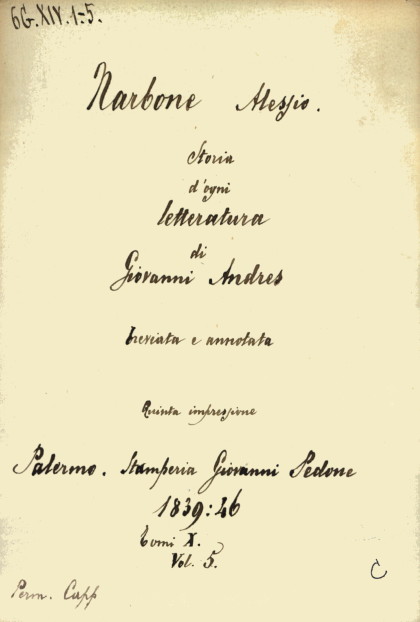 6G.XIV.1-5.
Narbone Alessio.
Storia
d'ogni
letteratura
di
Giovanni Andres
breviata e annotata
Quinta impressione
Palermo. Stamperia Giovanni Pedone
1839:46
Tomi X.
Vol. 5.
C
Perm. Capp